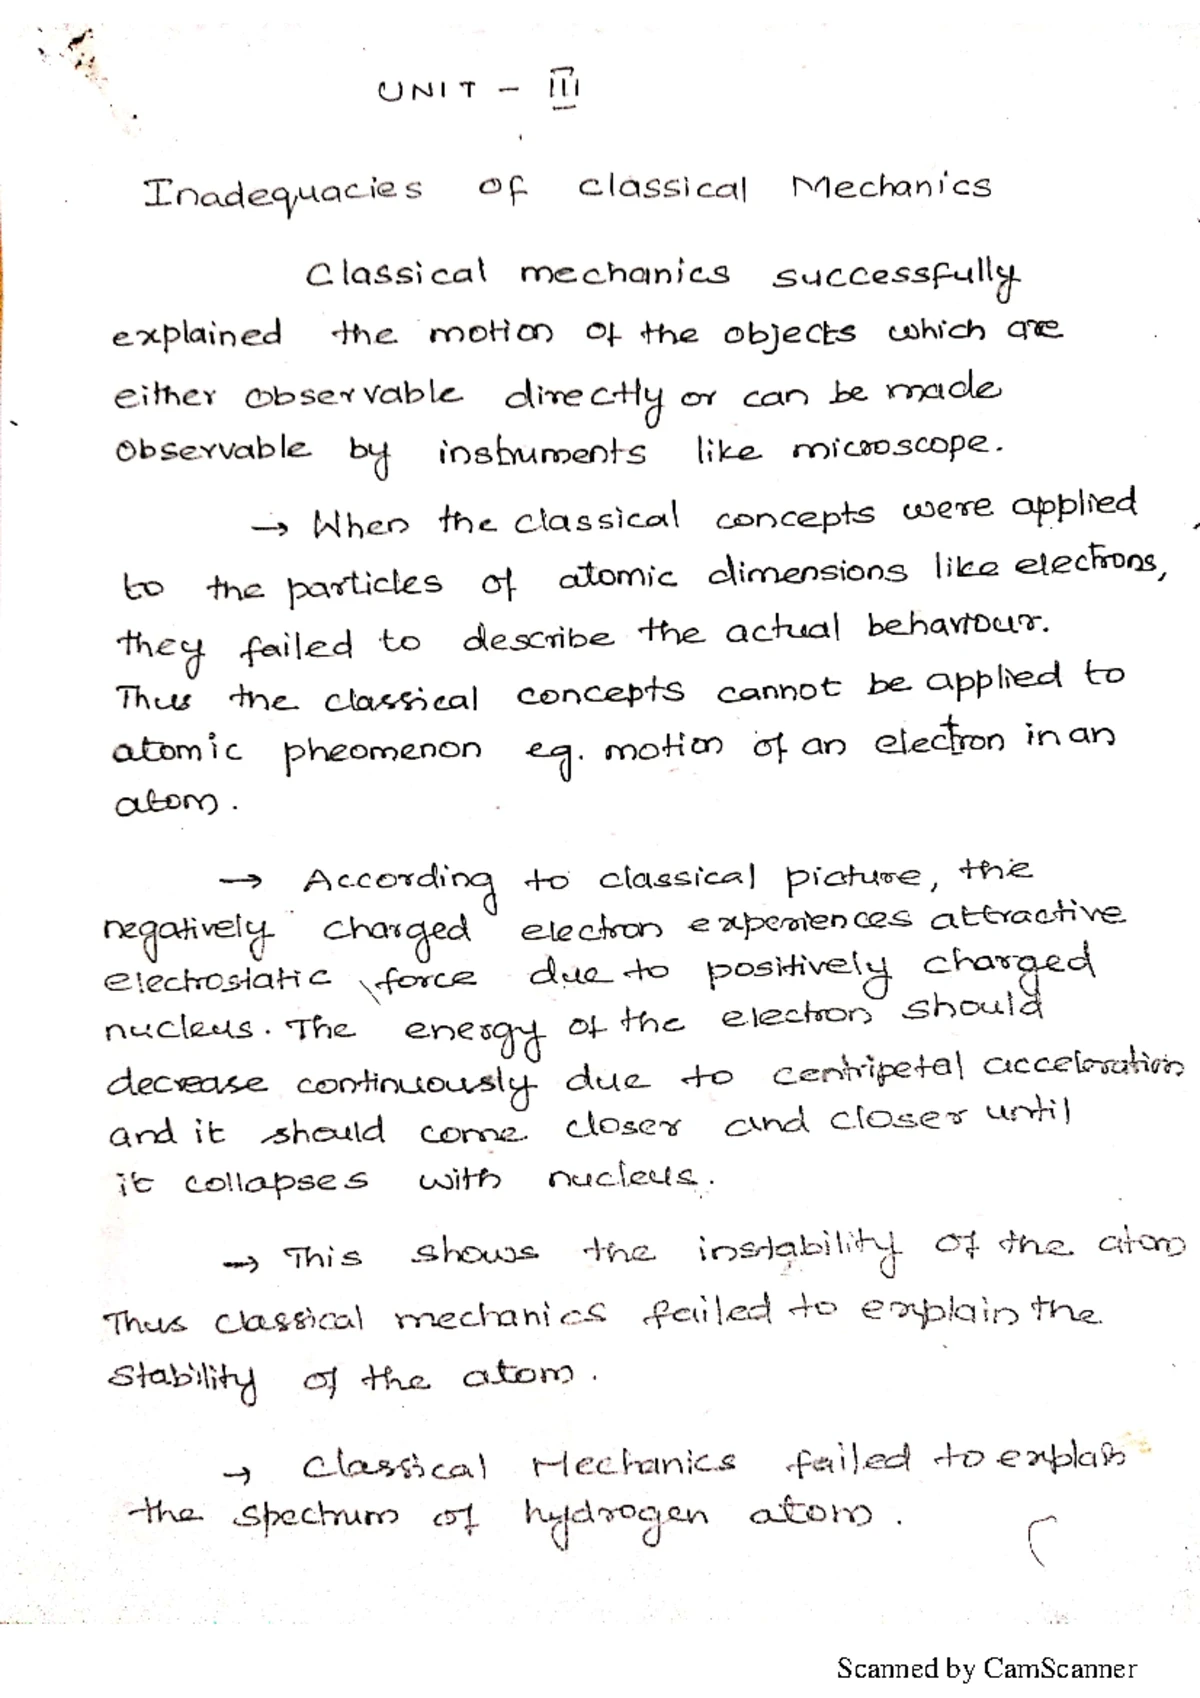 UNIT - III
Inadequacies of classical Mechanics
Classical mechanics successfully
explained the motion of the objects which are
either observable directly or can be made
observable by instruments like microscope.
→ When the classical concepts were applied
to the particles of atomic dimensions like electrons,
they failed to describe the actual behaviour.
Thus the classical concepts cannot be applied to
atomic pheomenon eg. motion of an electron in an
atom.
→ According to classical picture, the
negatively charged electron experiences attractive
electrostatic force due to positively charged
nucleus. The energy of the electron should
decrease continuously due to centripetal acceleration
and it should come closer and closer until
it collapses with nucleus.
→ This shows the instability of the atom
Thus classical mechanics failed to explain the
stability of the atom.
→ Classical Mechanics failed to explain
the spectrum of hydrogen atom.
Scanned by CamScanner